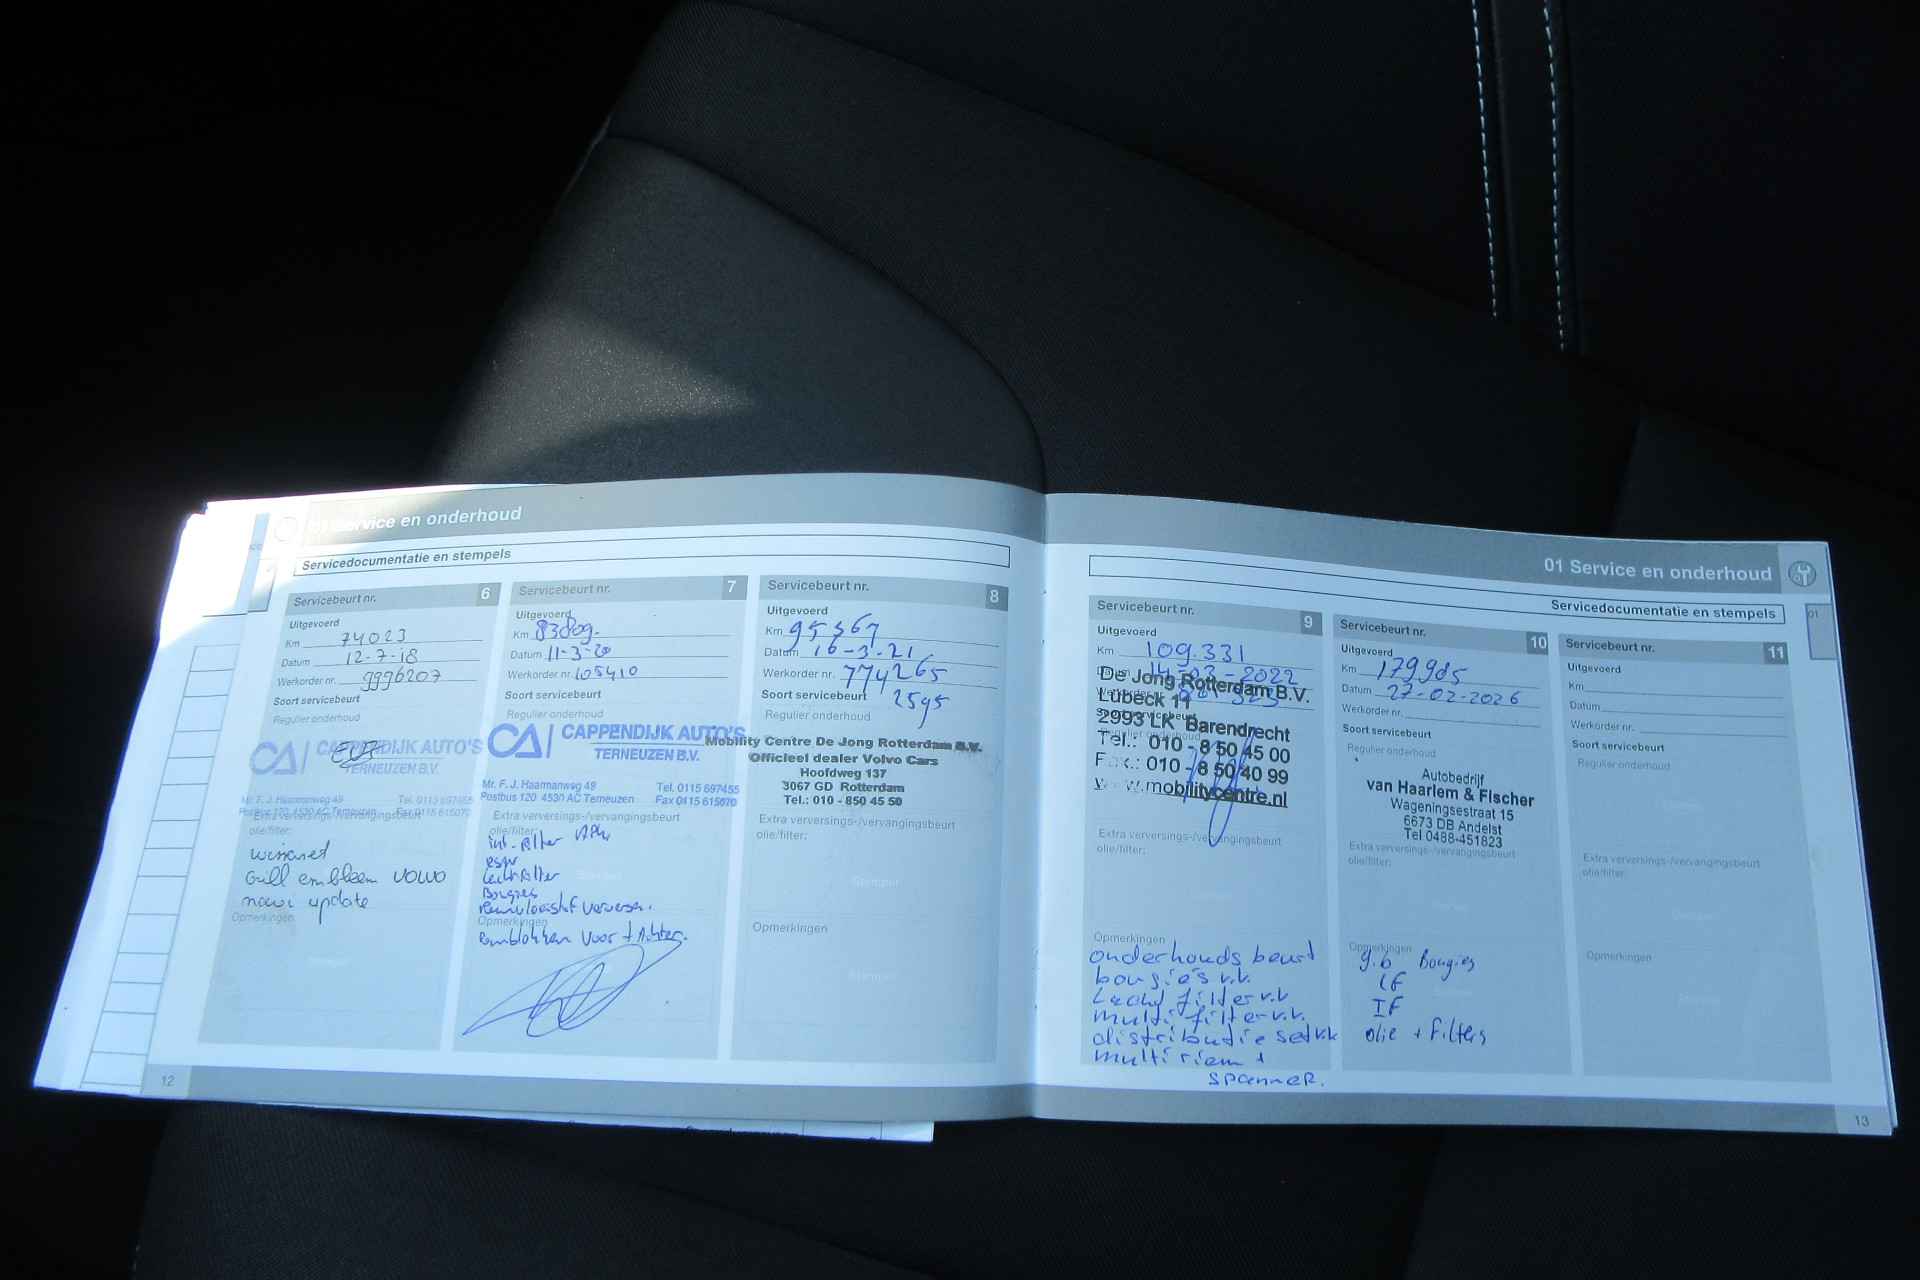 01 Service en onderhoud
Servicedocumentatie en stempels
Servicebeurt nr. 6
Uitgevoerd
Km 74023
Datum 12-7-18
Werkorder nr. 9996207
Soort servicebeurt
Regulier onderhoud
CA CAPPENDIJK AUTO'S
TERNEUZEN B.V.
Mr. F. J. Haarmanweg 49 Tel. 0115 697455
Postbus 120 4530 AC Terneuzen Fax 0115 615070
Extra verversings-/vervangingsbeurt
olie/filter:
wisserset
Grill embleem volvo
navi update
Opmerkingen
Servicebeurt nr. 7
Uitgevoerd
Km 83809.
Datum 11-3-20
Werkorder nr. 105410
Soort servicebeurt
Regulier onderhoud
CA CAPPENDIJK AUTO'S
TERNEUZEN B.V.
Mr. F. J. Haarmanweg 49 Tel. 0115 697455
Postbus 120 4530 AC Terneuzen Fax 0115 615070
Extra verversings-/vervangingsbeurt
olie/filter:
int. filter
Luchtfilter
Bougies
Remvloeistof verversen.
Opmerkingen
Remblokken voor + Achter.
Servicebeurt nr. 8
Uitgevoerd
Km 95367
Datum 16-3-21
Werkorder nr. 774265
Soort servicebeurt 2595
Regulier onderhoud
Mobility Centre De Jong Rotterdam B.V.
Officieel dealer Volvo Cars
Hoofdweg 137
3067 GD Rotterdam
Tel.: 010 - 850 45 50
Extra verversings-/vervangingsbeurt
olie/filter:
Stempel
Opmerkingen
12
01 Service en onderhoud
Servicedocumentatie en stempels
01
Servicebeurt nr. 9
Uitgevoerd
Km 109.331
Datum 14-03-2022
De Jong Rotterdam B.V.
Lübeck 11
2993 LK Barendrecht
Tel.: 010 - 8 50 45 00
Fax.: 010 - 8 50 40 99
www.mobilitycentre.nl
Extra verversings-/vervangingsbeurt
olie/filter:
Opmerkingen
onderhouds beurt
bougie's v.v.
Lucht filter v.v
multi filter v.v.
distributie set v.v
multi riem +
spanner.
Servicebeurt nr. 10
Uitgevoerd
Km 179985
Datum 27-02-2026
Werkorder nr.
Soort servicebeurt
Regulier onderhoud
Autobedrijf
van Haarlem & Fischer
Wageningsestraat 15
6673 DB Andelst
Tel 0488-451823
Extra verversings-/vervangingsbeurt
olie/filter:
Opmerkingen
g.b Bougies
LF
IF
olie + filters
Servicebeurt nr. 11
Uitgevoerd
Km
Datum
Werkorder nr.
Soort servicebeurt
Regulier onderhoud
Extra verversings-/vervangingsbeurt
olie/filter:
Opmerkingen
13